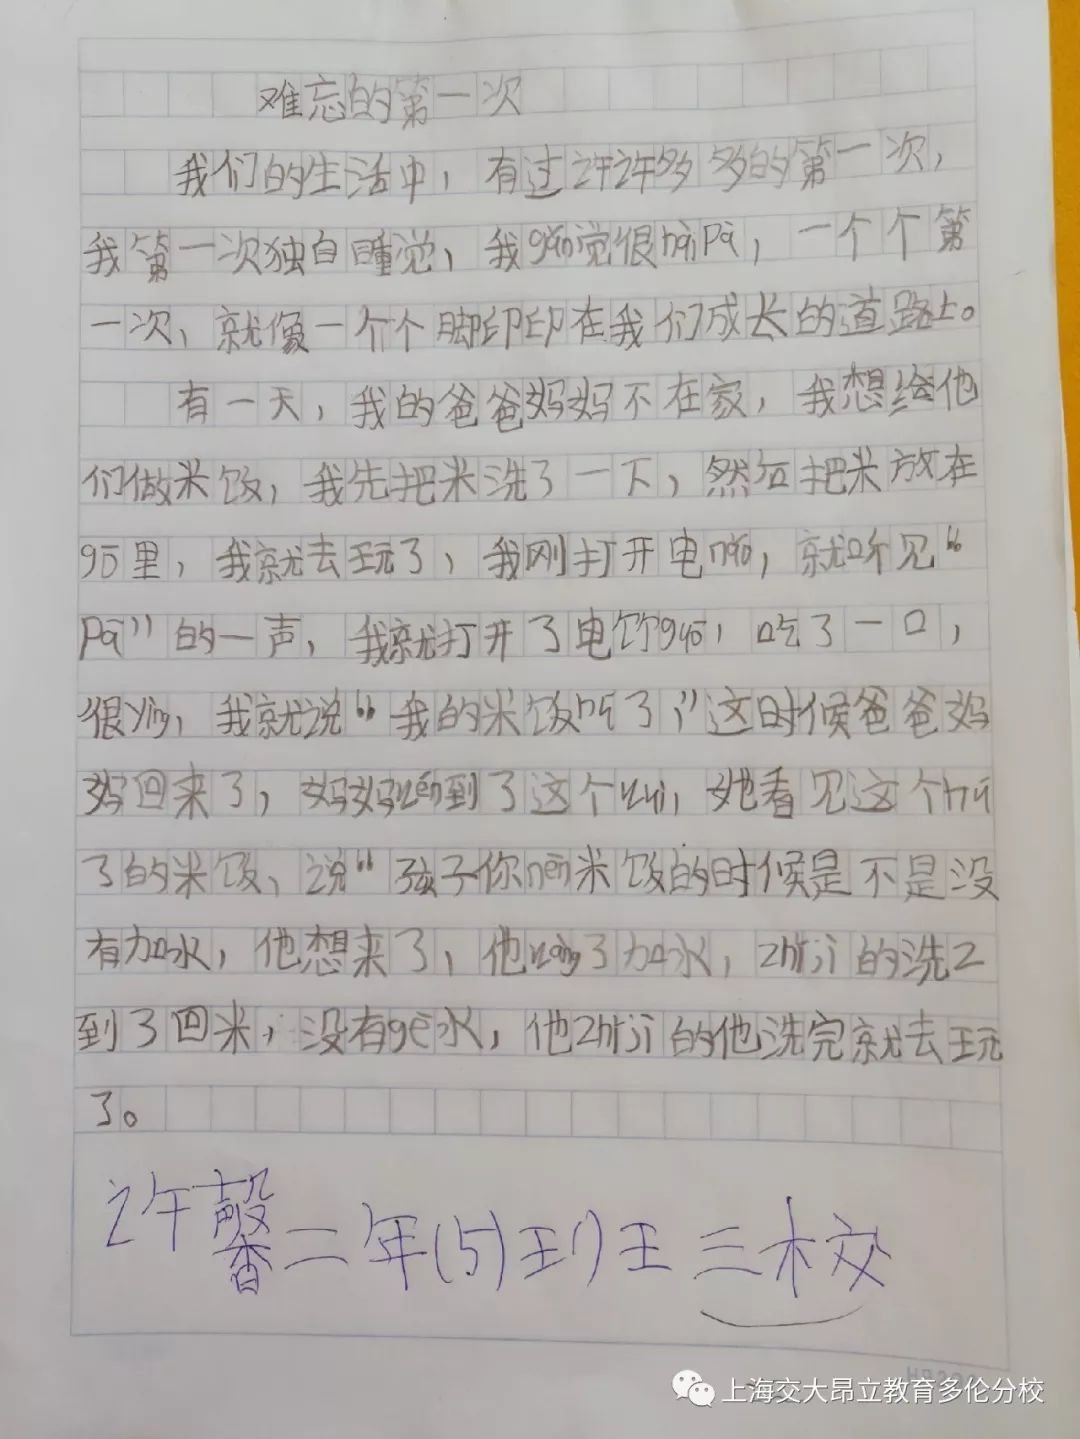 难忘的第一次
我们的生活中，有过许许多多的第一次，
我第一次独自睡觉，我gǎn觉很hàipà，一个个第
一次，就像一个个脚印印在我们成长的道路上。
有一天，我的爸爸妈妈不在家，我想给他
们做米饭，我先把米洗了一下，然后把米放在
gō里，我就去玩了，我刚打开电nǎo，就听见“
Pā”的一声，我就打开了电饭guō，吃了一口，
很yìng，我就说“我的米饭hú了，”这时候爸爸妈
妈回来了，妈妈wén到了这个wèi，她看见这个hú
了的米饭，说“孩子你nèn米饭的时候是不是没
有加水，他想来了，他wàng了加水，zhǐjì的洗
到了回米，没有gē水，他zhǐjì的他洗完就去玩
了。
许馨二年(5)班 三校
上海交大昂立教育多伦分校